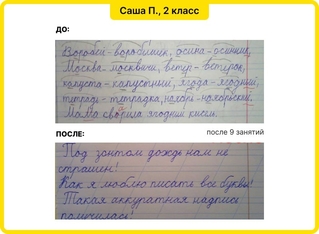 Саша П., 2 класс
ДО:
Воробей - воробышек, осина - осинник,
Москва - москвичи, ветер - ветерок,
капуста - капустный, ягода - ягодный,
тетрадь - тетрадка, ноябрь - ноябрьский.
Мама сварила ягодный кисель.
ПОСЛЕ:
после 9 занятий
Под зонтом дождь нам не
страшен!
Как я люблю писать все буквы!
Такая аккуратная надпись
получилась!